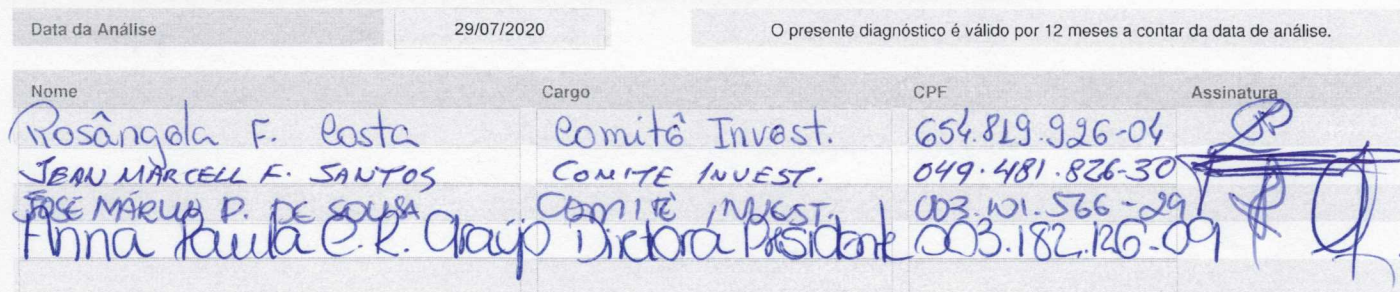 Data da Análise 29/07/2020 O presente diagnóstico é válido por 12 meses a contar da data de análise.
Nome Cargo CPF Assinatura
Rosângela F. Costa Comitê Invest. 654.819.926-04
JEAN MARCELL F. SANTOS COMITE INVEST. 049.481.826-30
JOSE MÁRCIO P. DE SOUSA COMITÊ INVEST. 003.101.566-29
Anna Paula C. R. Araújo Diretora Presidente 003.182.126-09